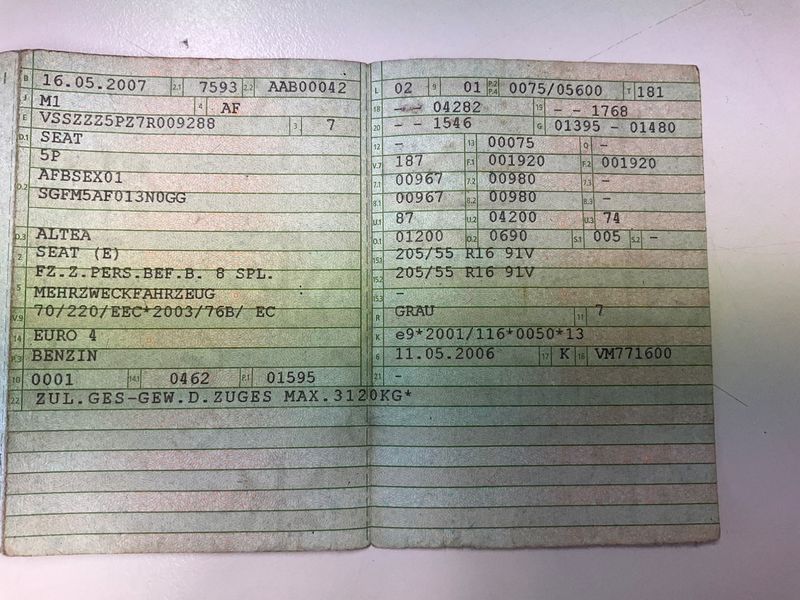 B 16.05.2007 2.1 7593 2.2 AAB00042
J M1 4 AF
E VSSZZZ5PZ7R009288 3 7
D.1 SEAT
5P
D.2 AFBSEX01
SGFM5AF013N0GG
D.3 ALTEA
2 SEAT (E)
FZ.Z.PERS.BEF.B. 8 SPL.
5 MEHRZWECKFAHRZEUG
V.9 70/220/EEC*2003/76B/ EC
14 EURO 4
P.3 BENZIN
10 0001 14.1 0462 P.1 01595
22 ZUL.GES-GEW.D.ZUGES MAX.3120KG*
L 02 9 01 P.2 P.4 0075/05600 T 181
18 - - 04282 19 - - 1768
20 - - 1546 G 01395 - 01480
12 - 13 00075 Q -
V.7 187 F.1 001920 F.2 001920
7.1 00967 7.2 00980 7.3 -
8.1 00967 8.2 00980 8.3 -
U.1 87 U.2 04200 U.3 74
O.1 01200 O.2 0690 S.1 005 S.2 -
15.1 205/55 R16 91V
15.2 205/55 R16 91V
15.3 -
R GRAU 11 7
K e9*2001/116*0050*13
6 11.05.2006 17 K 16 VM771600
21 -